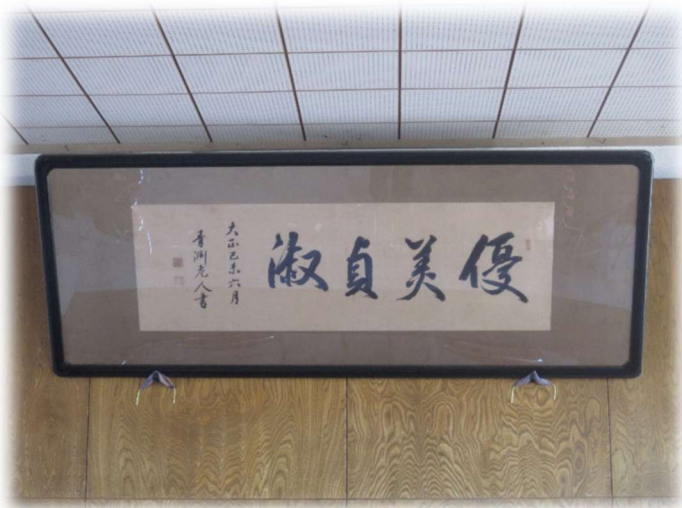 優美貞淑
大正己未六月
青淵老人書